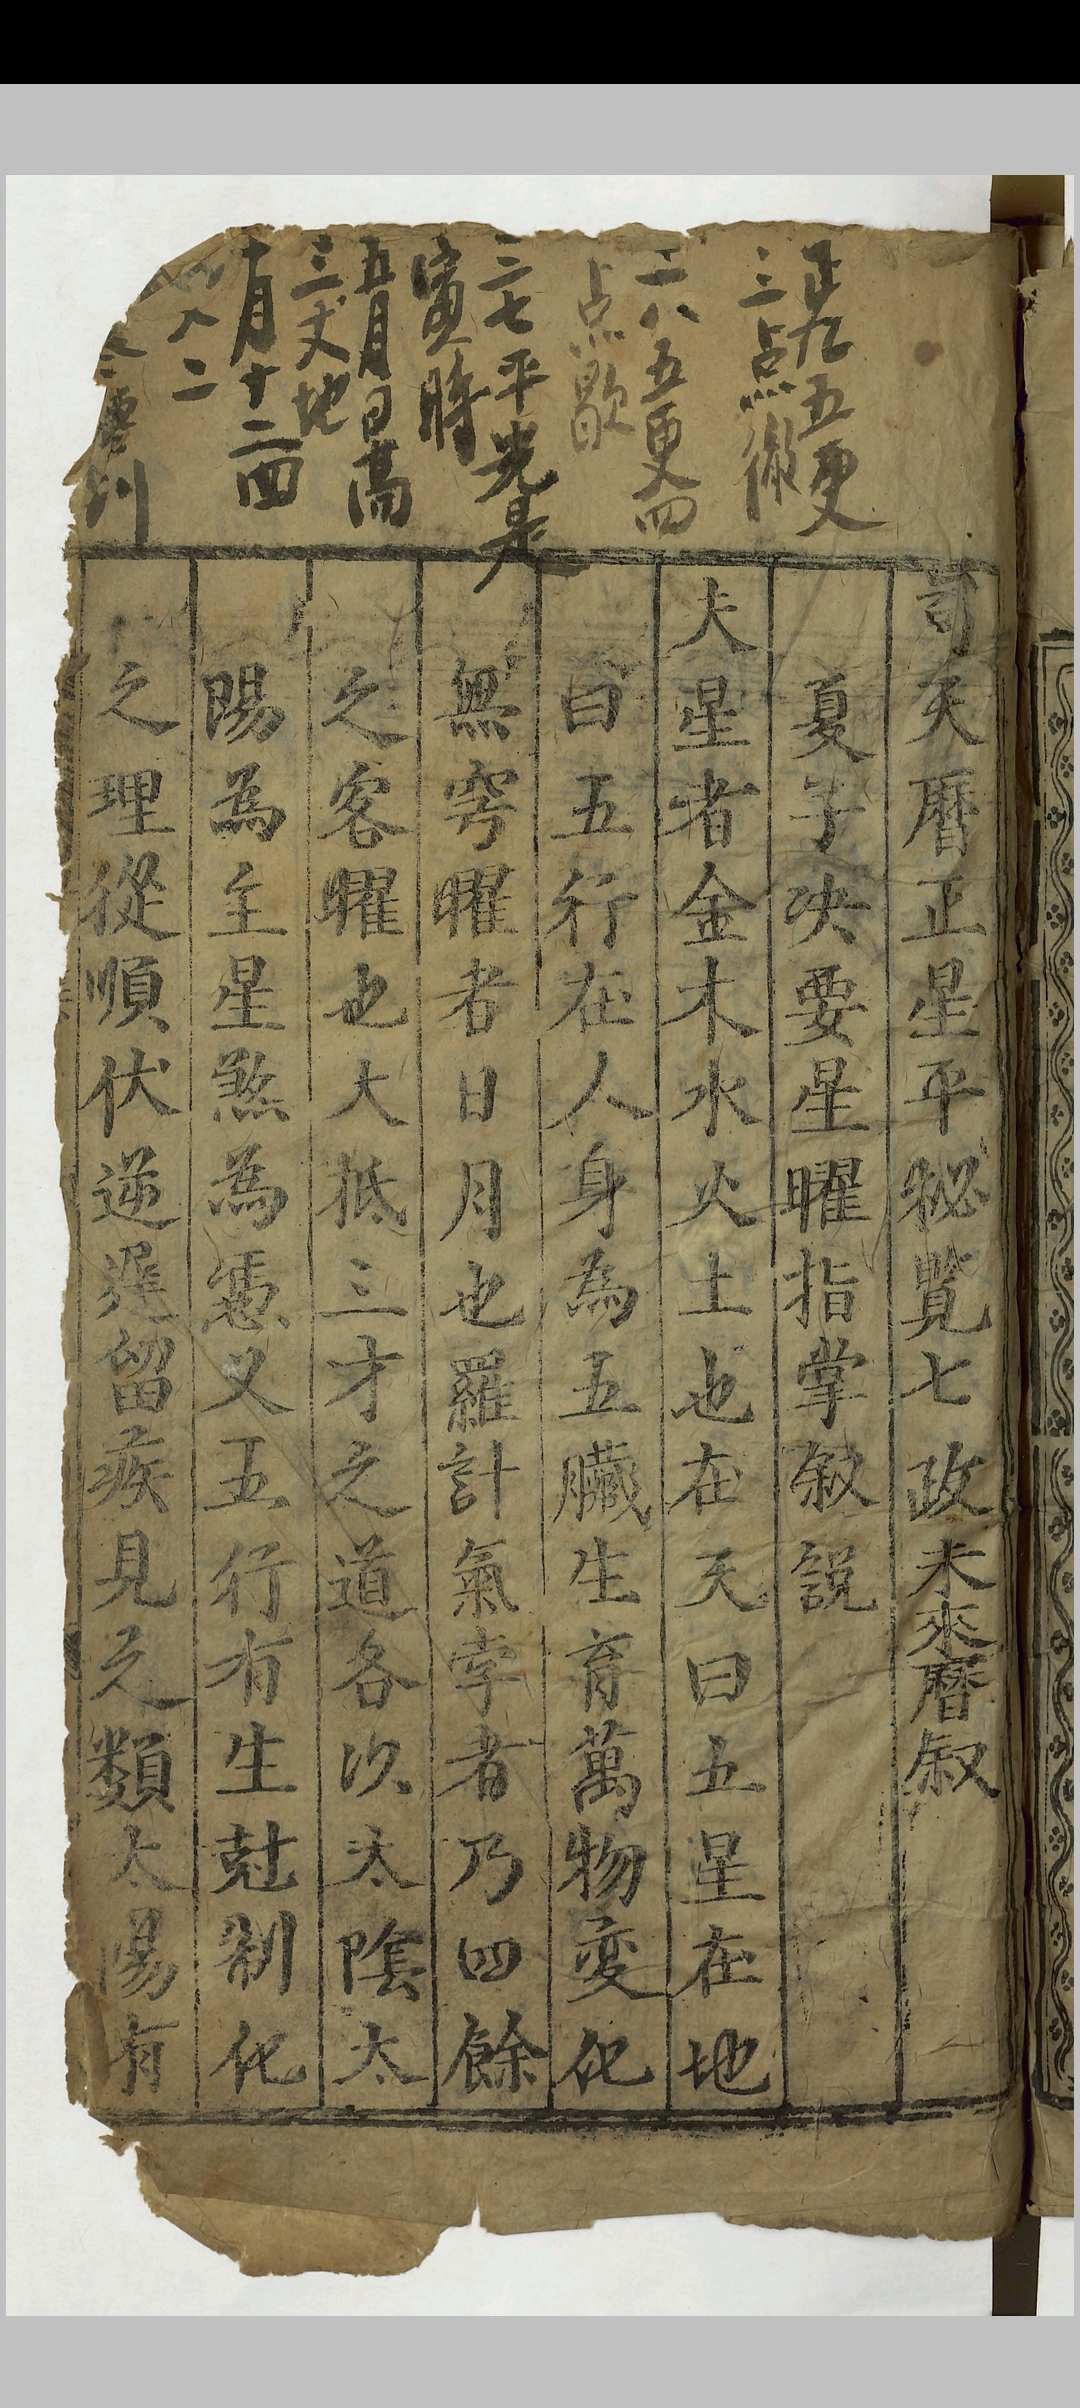 正九五更
三点徹
二八五更四
点歇
三七平光是
寅時
五月日高
三丈地
十月十二四
八二
司天曆正星平秘覽七政未來曆叙
夏子決要星曜指掌叙說
夫星者金木水火土也在天曰五星在地
曰五行在人身為五臟生育萬物変化
無窮曜者日月也羅計氣孛者乃四餘
之客曜也大抵三才之道各以太陰太
陽為主星煞為憑又五行有生尅制化
之理從順伏逆遲留疾見之類太陽有